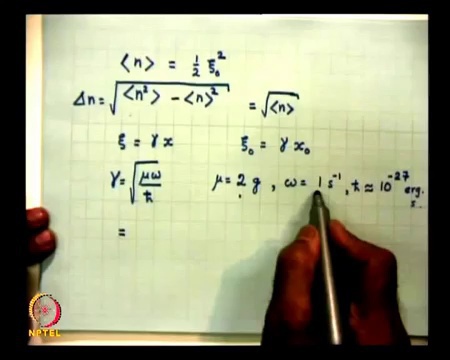 ⟨n⟩ = 1/2 ξ₀²
Δn = √(⟨n²⟩ - ⟨n⟩²) = √⟨n⟩
ξ = γx ξ₀ = γx₀
γ = √(μω/ħ) μ = 2 g , ω = 1 s⁻¹, ħ ≈ 10⁻²⁷ erg.
s.
=
NPTEL